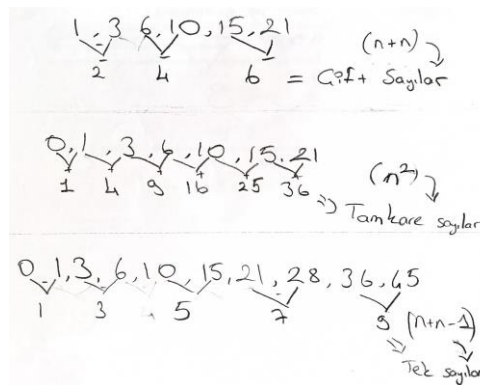 1, 3, 6, 10, 15, 21 (n+n)
2 4 6 = Çift Sayılar
0, 1, 3, 6, 10, 15, 21 (n²)
1 4 9 16 25 36 => Tamkare sayılar
0, 1, 3, 6, 10, 15, 21, 28, 36, 45
1 3 5 7 9 (n+n-1)
=> Tek sayılar